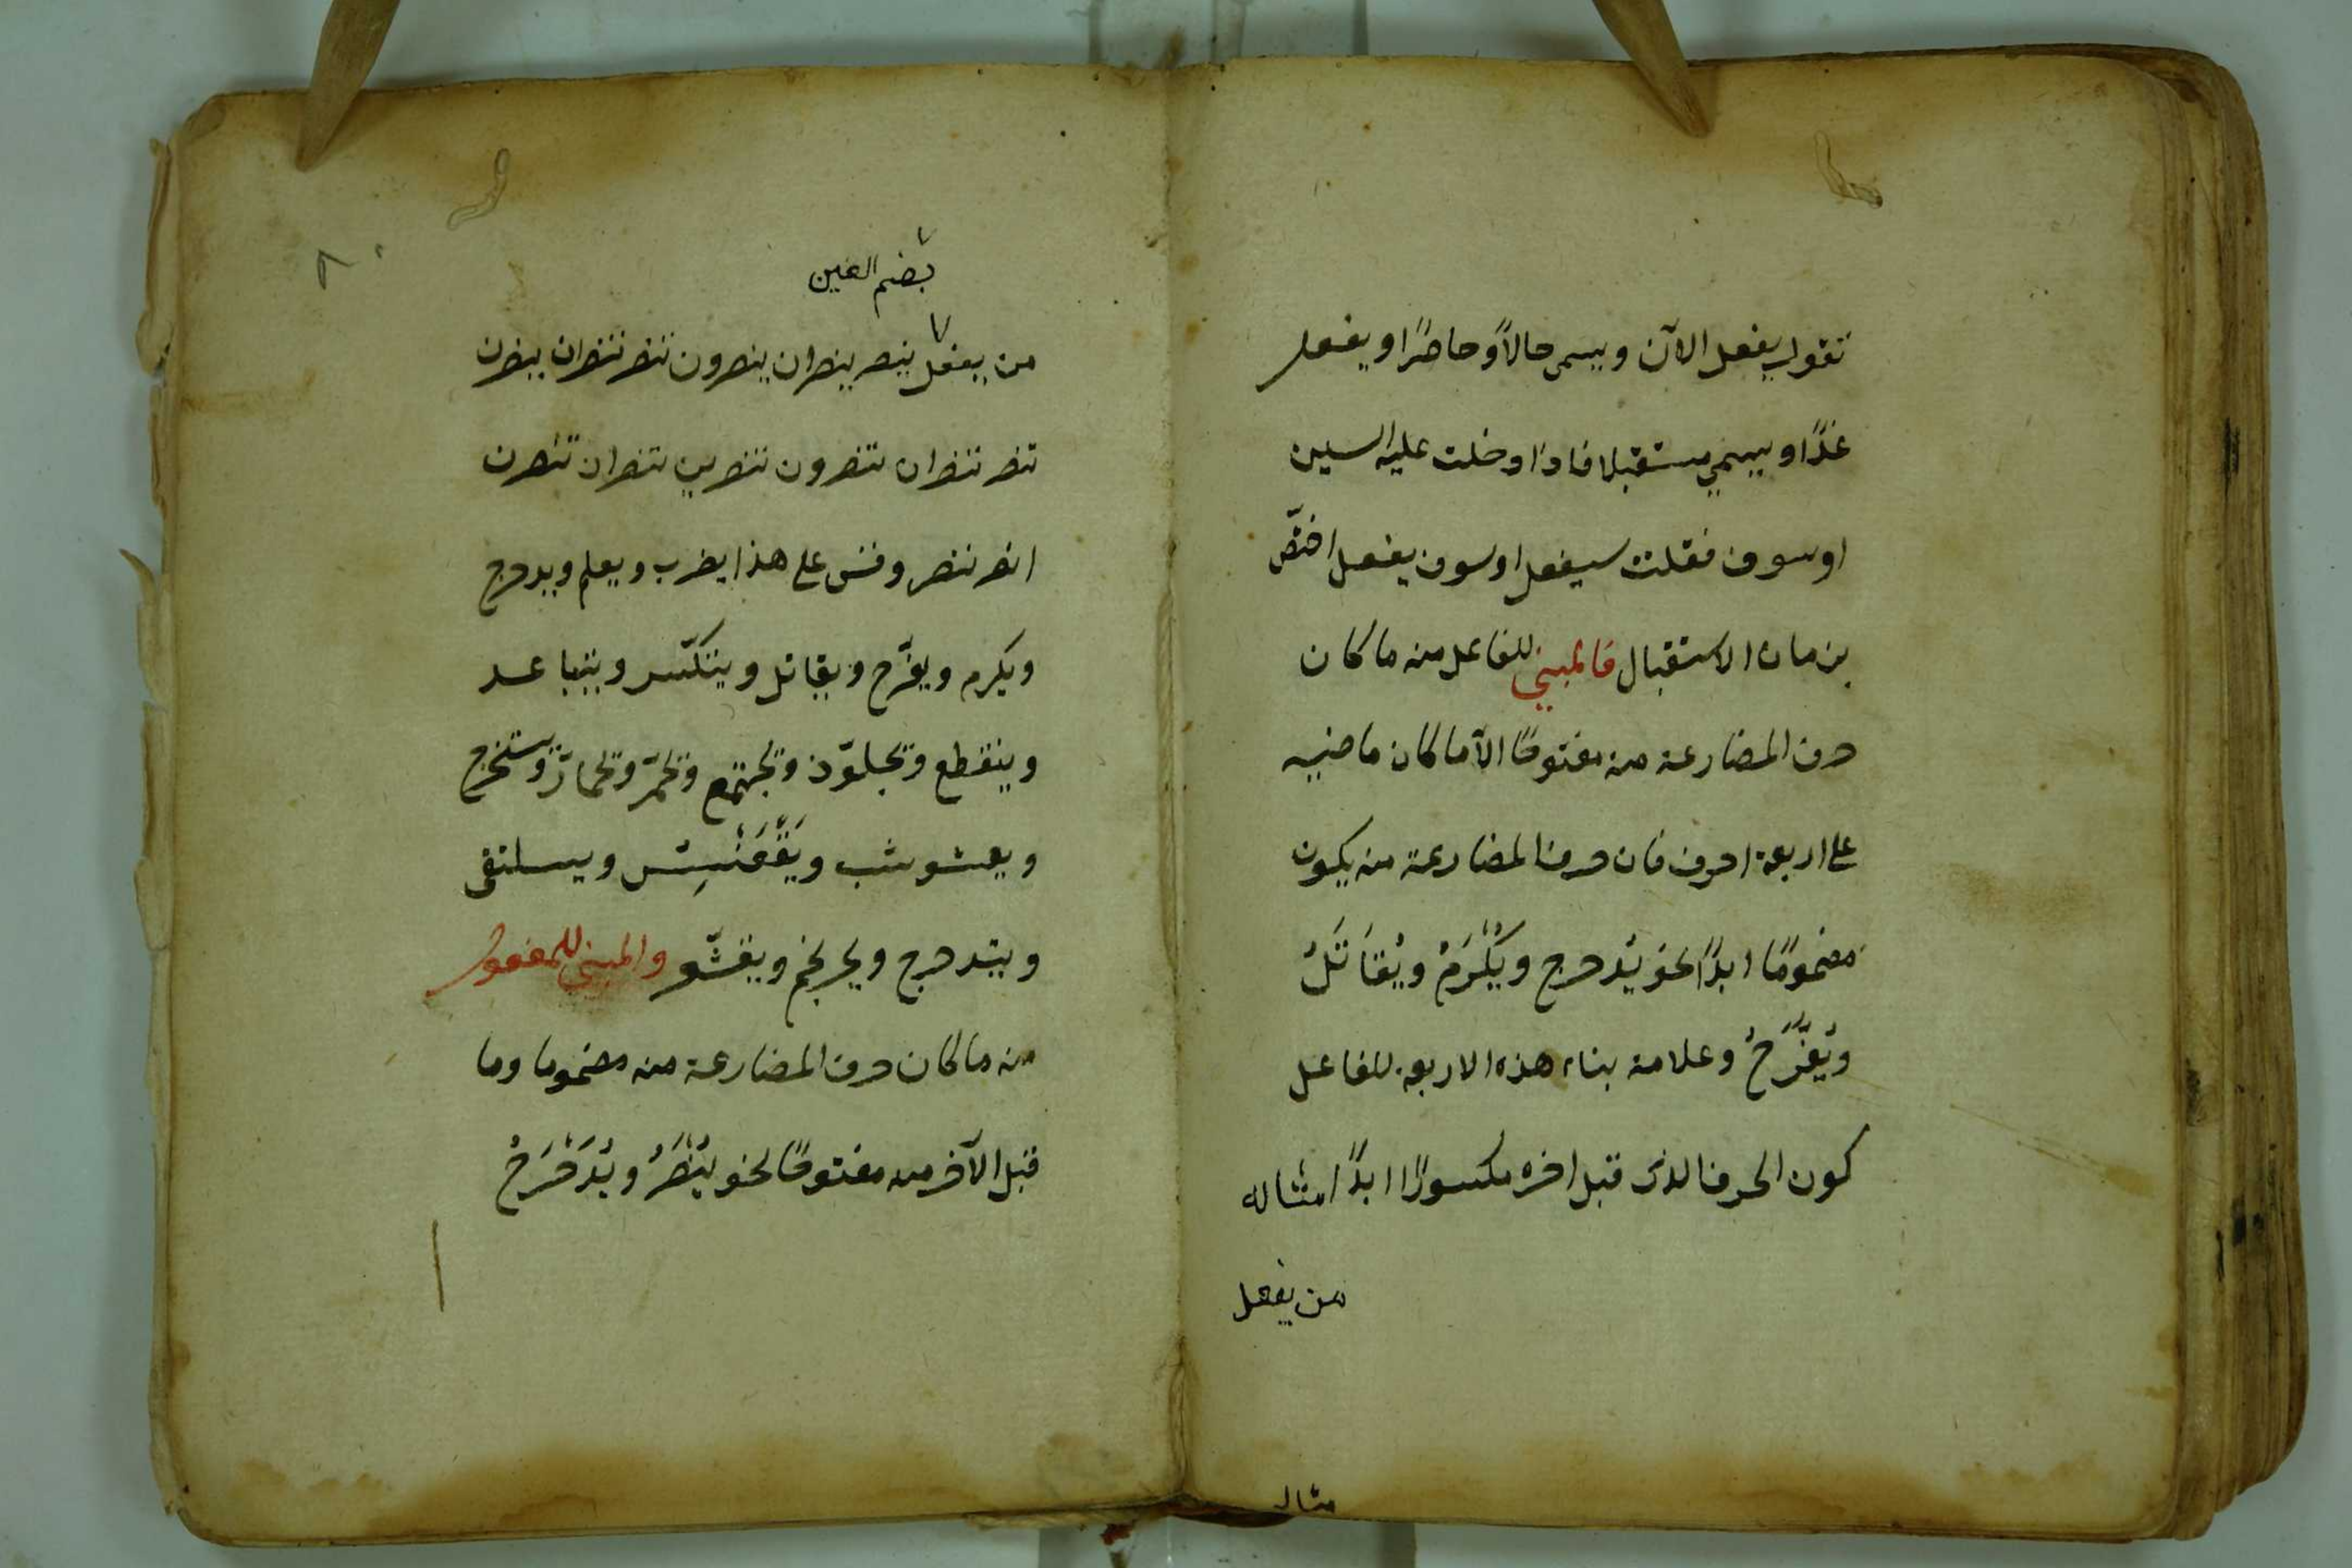 تقول يفعل الآن ويسمى حالاً وحاضرًا او يفعل
غدًا ويسمى مستقبلا فاذا ادخلت عليه السين
او سوف فقلت سيفعل او سوف يفعل اختصّ
بزمان الاستقبال فالمبني للفاعل منه ما كان
حرف المضارعة منه مفتوحًا الاّ ما كان ماضيه
على اربعة احرف فان حرف المضارعة منه يكون
مضمومًا ابدًا نحو يُدحرج ويُكْرِمُ ويُقَاتَلُ
ويُفَرِّحُ وعلامة بناء هذه الاربعة للفاعل
كون الحرف الذى قبل اخره مكسورًا ابدًا مثاله
من يفعل
مثال
٨
بضم العين
من يفعل ينصر ينصران ينصرون تنصر تنصران ينصرن
تنصر تنصران تنصرون تنصرين تنصران تنصرن
انصر ننصر وقس على هذا يضرب ويعلم ويدحرج
ويكرم ويفرّح ويقاتل ويتكسّر ويتباعد
وينقطع ويجلوّذ ويجتمع ويحمرّ ويحمارّ ويستخرج
ويعشوشب ويَقْعَنْسِس ويسلنقى
ويتدحرج ويحرنجم ويقشعرّ والمبني للمفعول
منه ما كان حرف المضارعة منه مضموما وما
قبل الآخر منه مفتوحًا نحو يُنْصَرُ ويُدَحْرَجُ